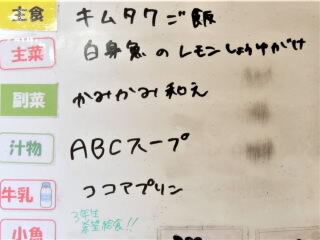 主食 キムタクご飯
主菜 白身魚のレモンしょうゆがけ
副菜 かみかみ和え
汁物 ABCスープ
牛乳 ココアプリン
3年生
希望給食!!
小魚